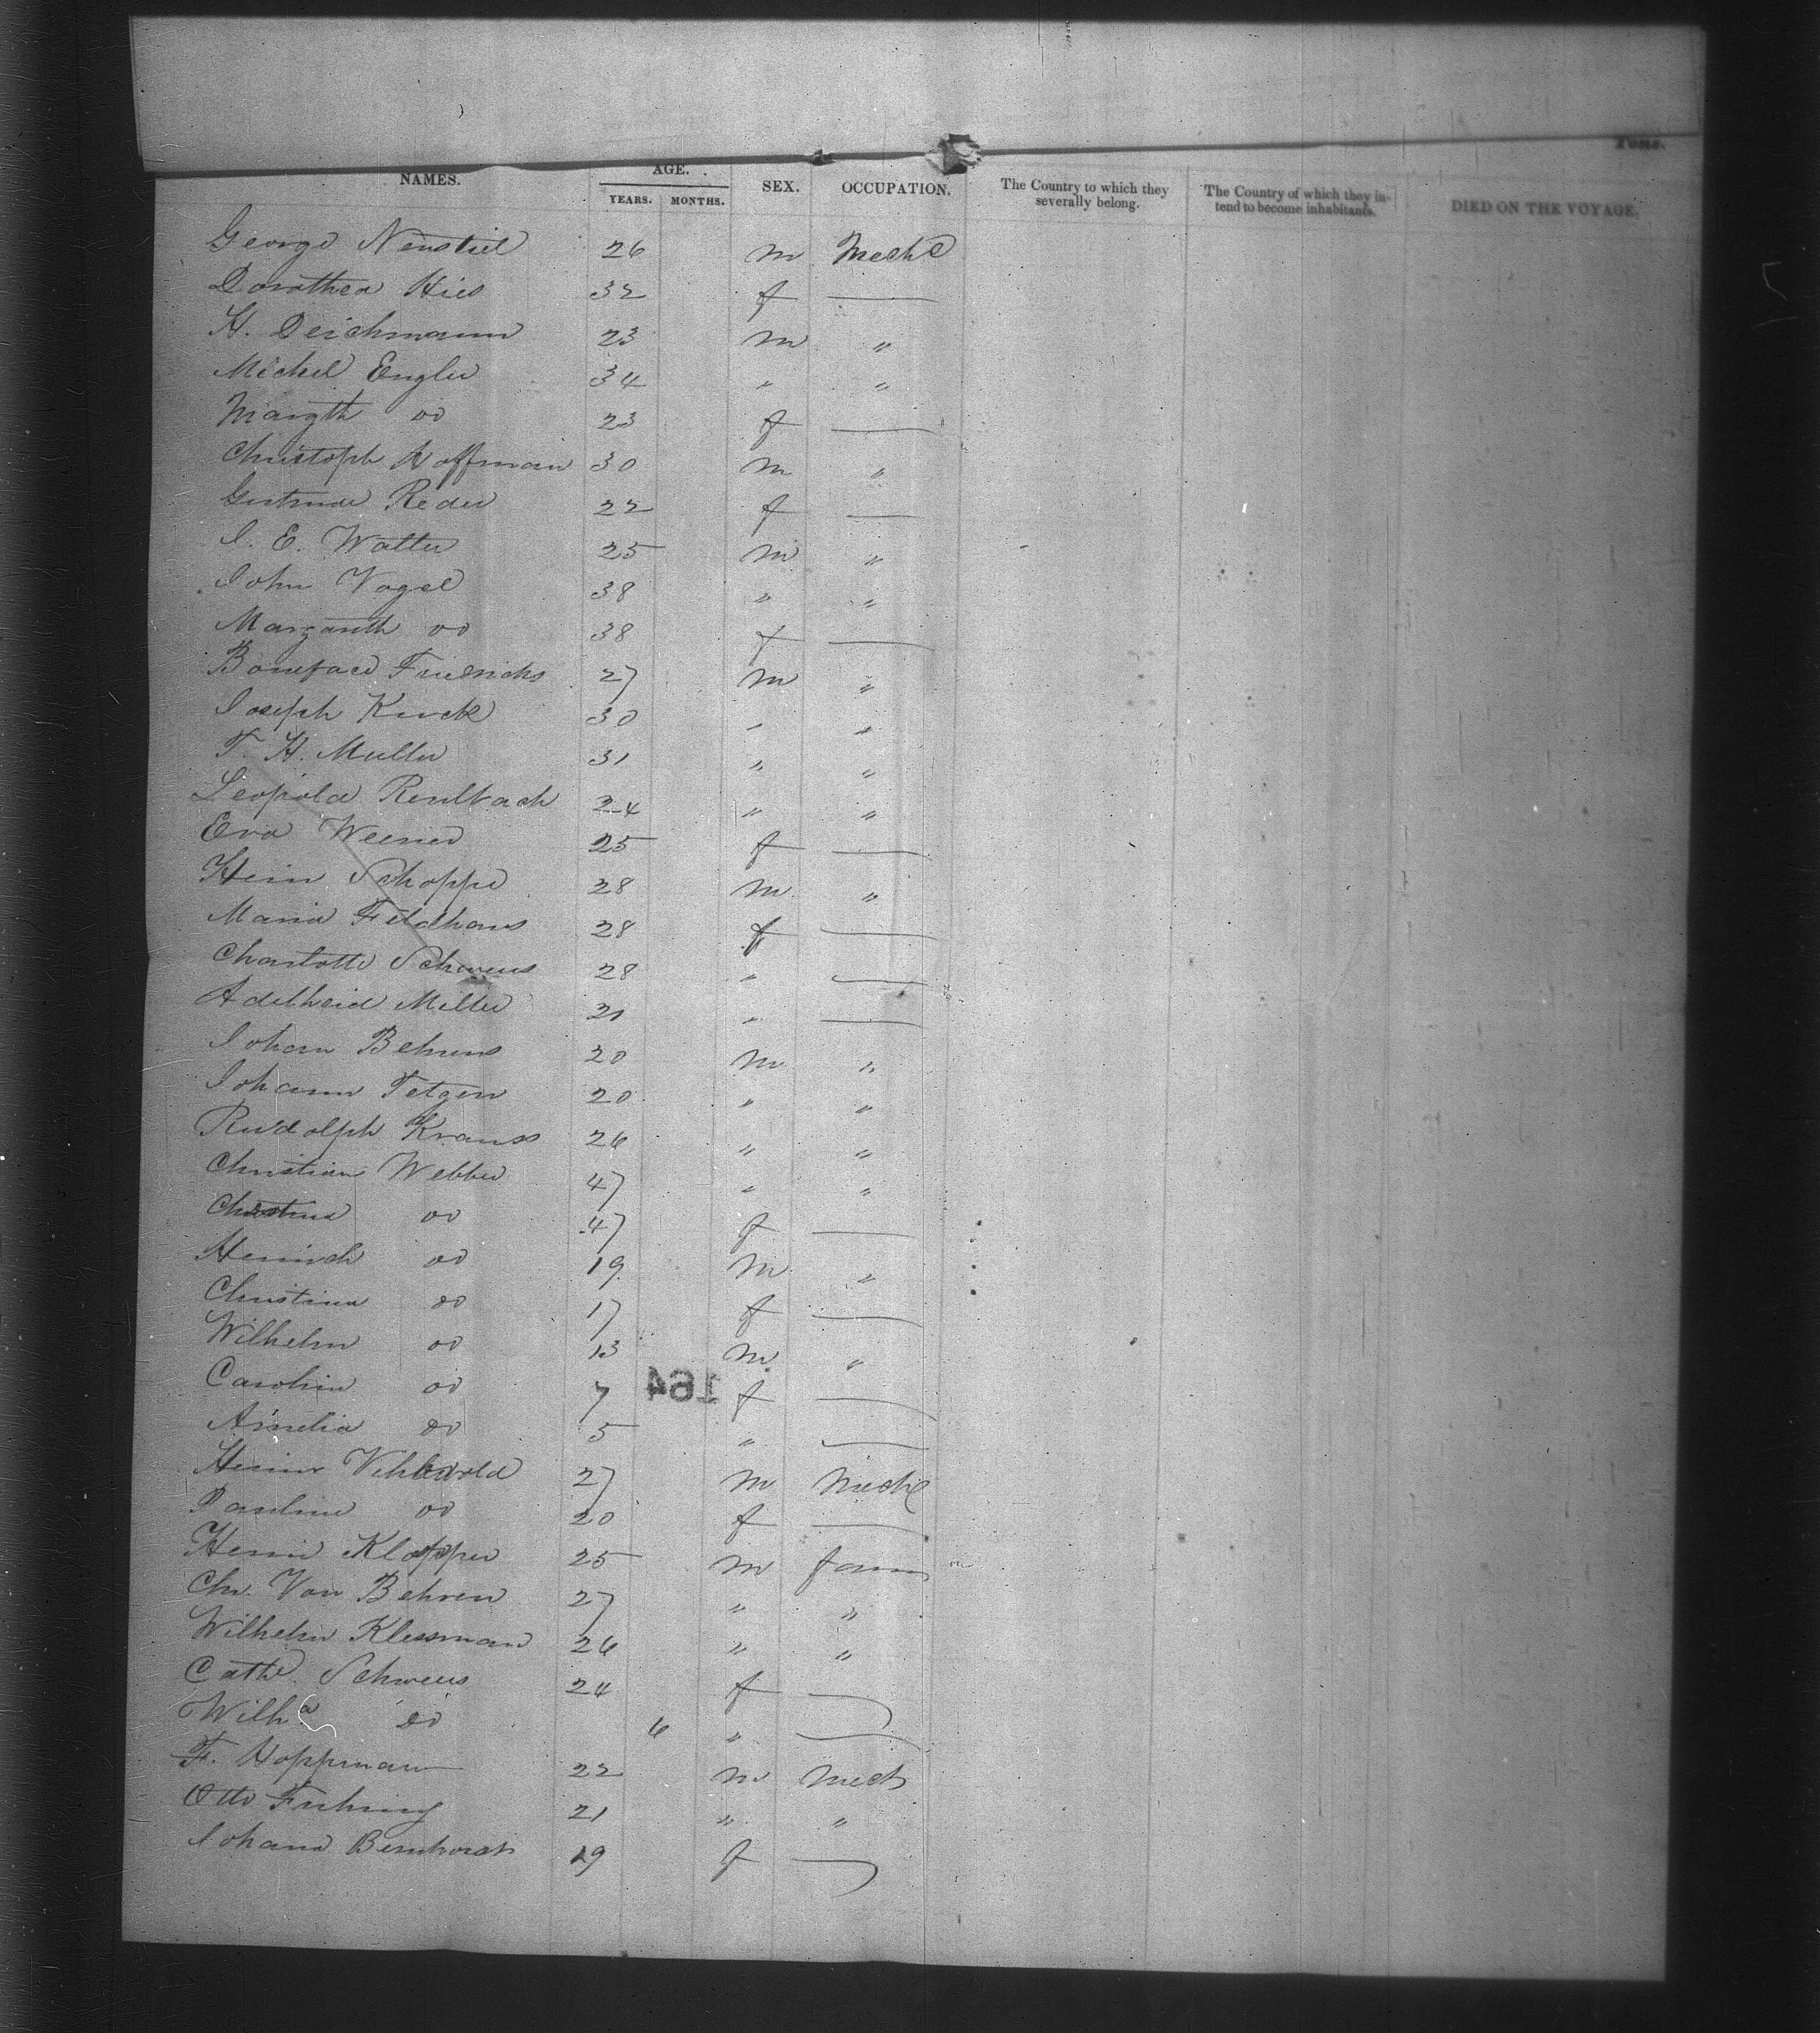 Tons.
NAMES. AGE. YEARS. MONTHS. SEX. OCCUPATION. The Country to which they severally belong. The Country of which they intend to become inhabitants. DIED ON THE VOYAGE.
George Neustiel 26 m Mechc
Dorothea Hies 32 f —
H. Deichmann 23 m "
Michel Engler 34 " "
Margth do 23 f —
Christoph Hoffman 30 m "
Gertrude Reder 22 f —
J. E. Walter 25 m "
John Vogel 38 " "
Margareth do 38 f —
Boniface Friedrichs 27 m "
Joseph Kurck 30 " "
F. H. Muller 31 " "
Leopold Reulbach 24 " "
Eva Weener 25 f —
Heinr Schoppe 28 m "
Maria Feldhaus 28 f —
Charlotte Schweus 28 " —
Adelheid Miller 21 " —
Johann Behrens 20 m "
Johann Tetgen 20 " "
Rudolph Krauss 26 " "
Christian Webber 47 " "
Christina do 47 f —
Heinrich do 19 m "
Christina do 17 f —
Wilhelm do 13 m "
Carolin do 7 f —
Amelia do 5 " —
164
Heinr 27 m Mech
Pauline do 20 f —
Heinr Klopper 25 m farm
Chr. Von Behren 27 " "
Wilhelm Klessmann 26 " "
Cathe Schweus 24 f —
Wilha do 6 " —
F. Hoppman 22 m Mech
Otto 21 " "
Johana 19 f —